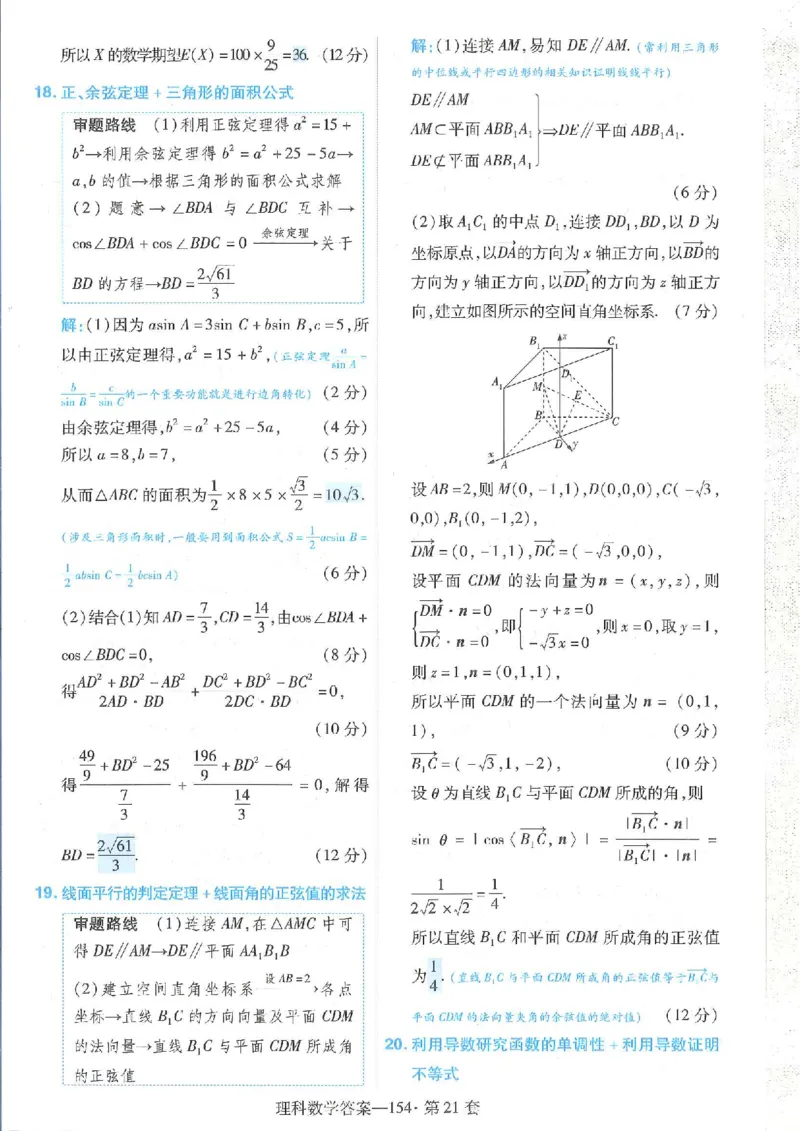 所以X的数学期望E(X)=100×9/25=36. (12分)
18. 正、余弦定理+三角形的面积公式
审题路线 (1)利用正弦定理得a²=15+
b²→利用余弦定理得 b²=a²+25-5a→
a,b的值→根据三角形的面积公式求解
(2) 题意→∠BDA 与 ∠BDC 互补→
cos∠BDA+cos∠BDC=0 余弦定理→关于
BD的方程→BD=2√61/3
解:(1)因为asin A=3sin C+bsin B,c=5,所
以由正弦定理得,a²=15+b²,(正弦定理 a/sin A=
b/sin B=c/sin C的一个重要功能就是进行边角转化) (2分)
由余弦定理得,b²=a²+25-5a, (4分)
所以a=8,b=7, (5分)
从而△ABC的面积为1/2×8×5×√3/2=10√3.
(涉及三角形面积时,一般要用到面积公式S=1/2acsin B=
1/2absin C=1/2bcsin A) (6分)
(2)结合(1)知AD=7/3,CD=14/3,由cos∠BDA+
cos∠BDC=0, (8分)
得(AD²+BD²-AB²)/(2AD·BD)+(DC²+BD²-BC²)/(2DC·BD)=0,
(10分)
得(49/9+BD²-25)/(7/3)+(196/9+BD²-64)/(14/3)=0,解得
BD=2√61/3. (12分)
19. 线面平行的判定定理+线面角的正弦值的求法
审题路线 (1)连接AM,在△AMC中可
得DE∥AM→DE∥平面AA₁B₁B
(2)建立空间直角坐标系 设AB=2→各点
坐标→直线B₁C的方向向量及平面CDM
的法向量→直线B₁C与平面CDM所成角
的正弦值
解:(1)连接AM,易知DE∥AM.(常利用三角形
的中位线或平行四边形的相关知识证明线线平行)
DE∥AM
AM⊂平面ABB₁A₁}⇒DE∥平面ABB₁A₁.
DE⊄平面ABB₁A₁
(6分)
(2)取A₁C₁的中点D₁,连接DD₁,BD,以D为
坐标原点,以DA→的方向为x轴正方向,以BD→的
方向为y轴正方向,以DD₁→的方向为z轴正方
向,建立如图所示的空间直角坐标系. (7分)
B₁ z C₁
D₁
A₁ M E
B C
D y
x A
设AB=2,则M(0,-1,1),D(0,0,0),C(-√3,
0,0),B₁(0,-1,2),
DM→=(0,-1,1),DC→=(-√3,0,0),
设平面CDM的法向量为n=(x,y,z),则
{DM→·n=0 DC→·n=0,即{-y+z=0 -√3x=0,则x=0,取y=1,
则z=1,n=(0,1,1),
所以平面CDM的一个法向量为n=(0,1,
1), (9分)
B₁C→=(-√3,1,-2), (10分)
设θ为直线B₁C与平面CDM所成的角,则
sin θ=|cos〈B₁C→,n〉|=|B₁C→·n|/(|B₁C→|·|n|)=
1/(2√2×√2)=1/4.
所以直线B₁C和平面CDM所成角的正弦值
为1/4.(直线B₁C与平面CDM所成角的正弦值等于B₁C→与
平面CDM的法向量夹角的余弦值的绝对值) (12分)
20. 利用导数研究函数的单调性+利用导数证明
不等式
理科数学答案—154·第21套